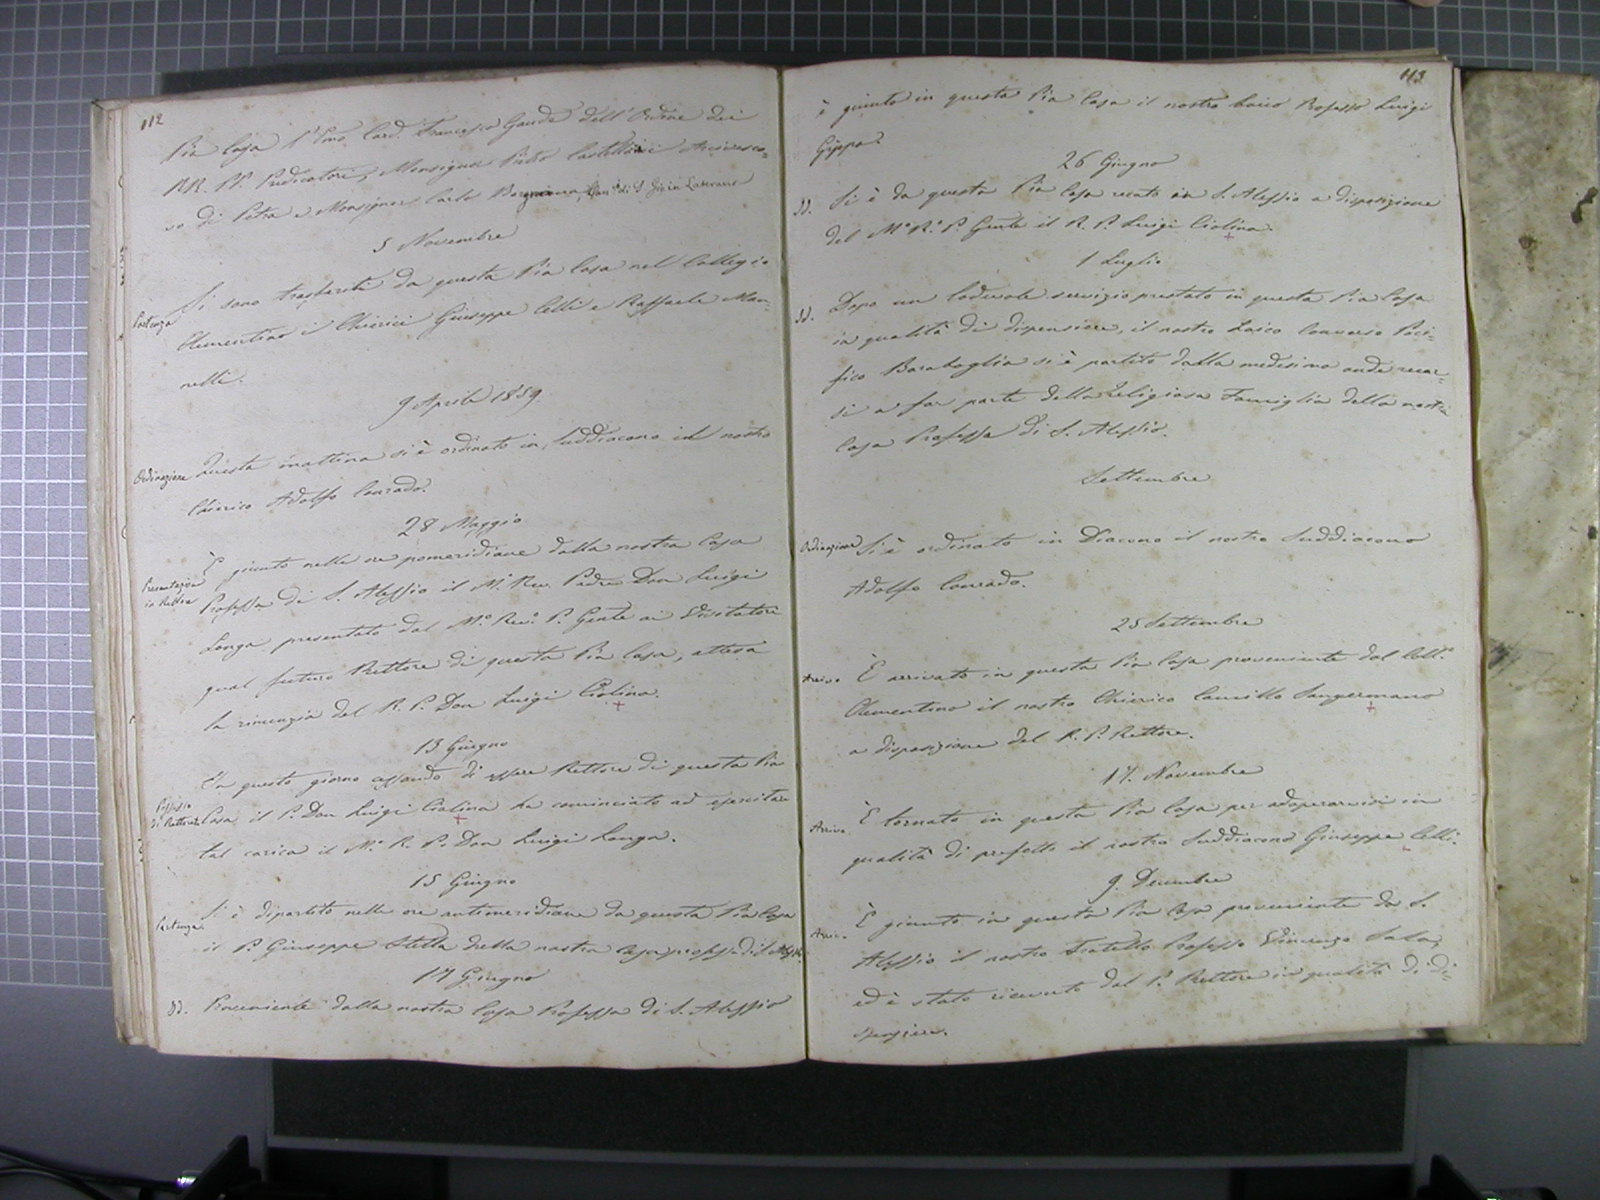 112
Pia Casa l'Emo Card. Francesco Gaude dell'Ordine dei
RR. PP. Predicatori, Monsignor Pietro Castellini Arcivesco-
vo di Petra e Monsignor Carlo Borgnana, Can.o di S. Gio in Laterano
5 Novembre
Partenza
Si sono trasferiti da questa Pia Casa nel Collegio
Clementino i Chierici Giuseppe Celli e Raffaele Man-
nelli.
9 Aprile 1859
Ordinazione
Questa mattina si è ordinato in Suddiacono il nostro
Chierico Adolfo Conrado.
28 Maggio
Presentazione
in Rettore
È giunto nelle ore pomeridiane dalla nostra Casa
Professa di S. Alessio il M.o Rev. Padre Don Luigi
Longa presentato dal M.o Rev.o P. Gente ai Visitatore
qual futuro Rettore di questa Pia Casa, attesa
la rinunzia del R. P. Don Luigi Ciolina.
13 Giugno
Possesso
di Rettorato
In questo giorno cessando di essere Rettore di questa Pia
Casa il P. Don Luigi Ciolina ha cominciato ad esercitare
tal carica il M.o R. P. Don Luigi Longa.
15 Giugno
Partenza.
Si è dipartito nelle ore antimeridiane da questa Pia Casa
il P. Giuseppe Stella della nostra Casa professa di S. Aless.o
17 Giugno
Id. Proveniente dalla nostra Casa Professa di S. Alessio
113
è giunto in questa Pia Casa il nostro laico Professo Luigi
Gippa.
26 Giugno
Id. Si è da questa Pia Casa recato in S. Alessio a disposizione
del M.o R.o P. Gente il R. P. Luigi Ciolina.
1 Luglio
Id. Dopo un lodevole servizio prestato in questa Pia Casa
in qualità di dispensiere, il nostro Laico Converso Paci-
fico Barabaglia si è partito dalla medesima onde recar-
si a far parte della religiosa Famiglia della nostra
Casa Professa di S. Alessio.
Settembre
Ordinazione
Si è ordinato in Diacono il nostro Suddiacono
Adolfo Conrado.
25 Settembre
Arrivo
È arrivato in questa Pia Casa proveniente dal Coll.o
Clementino il nostro Chierico Camillo Sangermano
a disposizione del R. P. Rettore.
17. Novembre
Arrivo.
È tornato in questa Pia Casa per adoperarvisi in
qualità di prefetto il nostro Suddiacono Giuseppe Celli.
9. Decembre
Arrivo.
È giunto in questa Pia Casa proveniente da S.
Alessio il nostro Fratello Professo Vincenzo Sala,
ed è stato ricevuto dal P. Rettore in qualità di di-
spensiere.